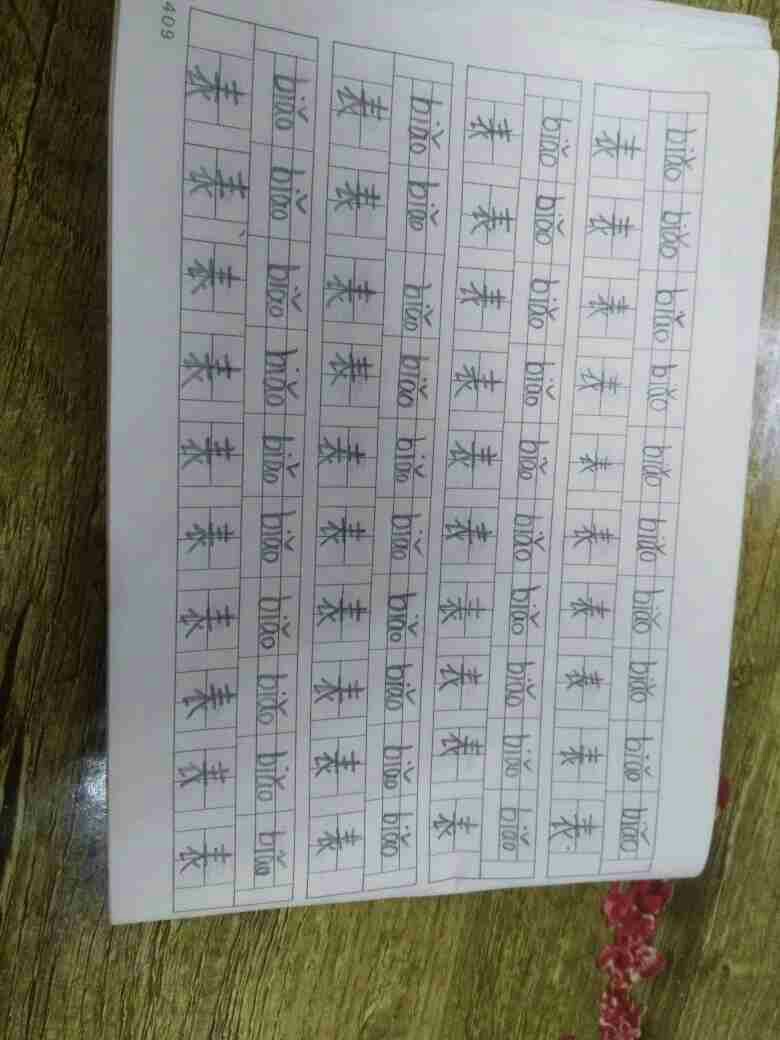 biǎo biǎo biǎo biǎo biǎo biǎo biǎo biǎo biǎo biǎo
表 表 表 表 表 表 表 表 表 表
biǎo biǎo biǎo biǎo biǎo biǎo biǎo biǎo biǎo biǎo
表 表 表 表 表 表 表 表 表 表
biǎo biǎo biǎo biǎo biǎo biǎo biǎo biǎo biǎo biǎo
表 表 表 表 表 表 表 表 表 表
biǎo biǎo biǎo biǎo biǎo biǎo biǎo biǎo biǎo biǎo
表 表 表 表 表 表 表 表 表 表
409